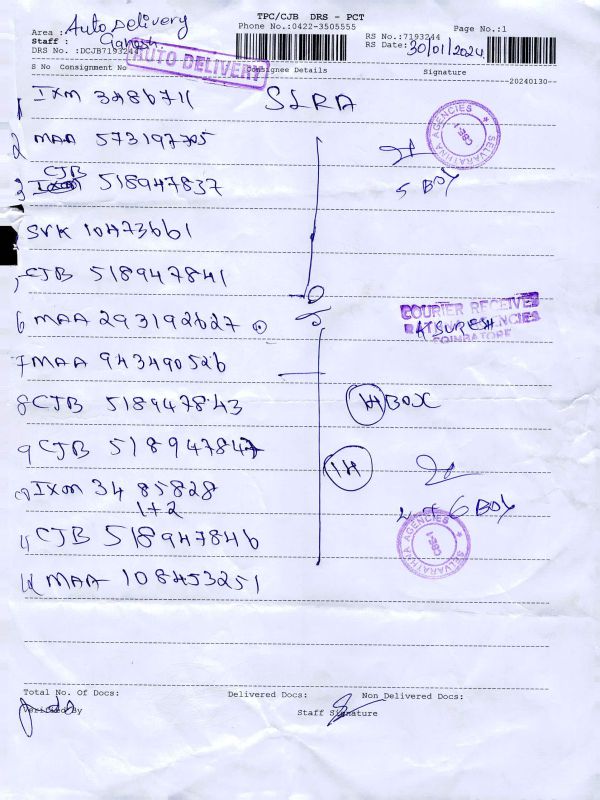 TPC/CJB DRS - PCT
Phone No.:0422-3505555
Page No.:1
Area : Auto Delivery
Staff : Ganesh
DRS No. :DCJB7193244
RS No.:7193244
RS Date: 30/01/2024
AUTO DELIVERY
S No Consignment No Consignee Details Signature
--20240130--
1 IXM 3486711 SLRA
2 MAA 573197705
SELVARATHNA AGENCIES
5 BOX
3 CJB 518947837
SVK 10473661
CJB 518947841
6 MAA 293192627
COURIER RECEIVED
K. SURESH
COIMBATORE
7 MAA 943490526
8 CJB 518947843 1H BOX
9 CJB 518947847 1H
IXM 3485828
1+2
+ 6 BOX
11 CJB 518947846
SELVARATHNA AGENCIES
12 MAA 108453251
Total No. Of Docs: Delivered Docs: Non Delivered Docs:
Verified By Staff Signature